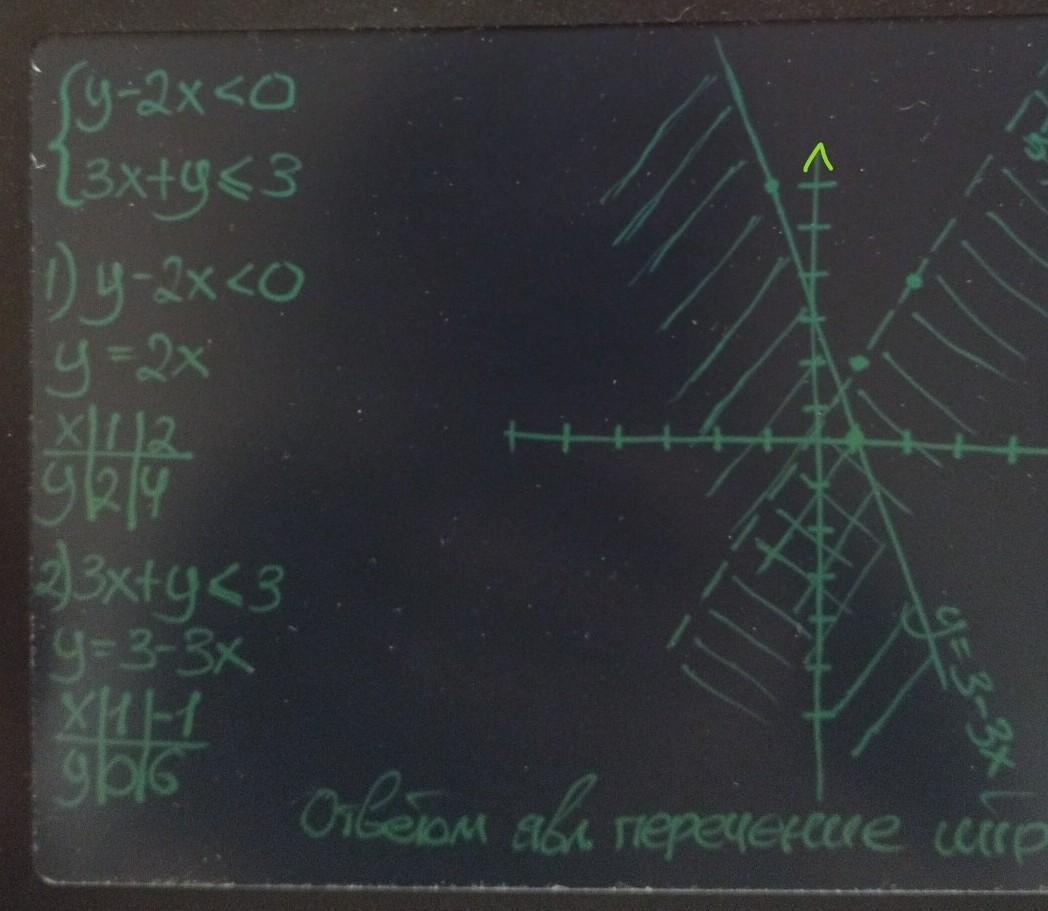 {y-2x<0
{3x+y⩽3
1) y-2x<0
y=2x
x|1|2
y|2|4
2) 3x+y⩽3
y=3-3x
x|1|-1
y|0|6
y=3-3x
Ответом явл. перечение штр